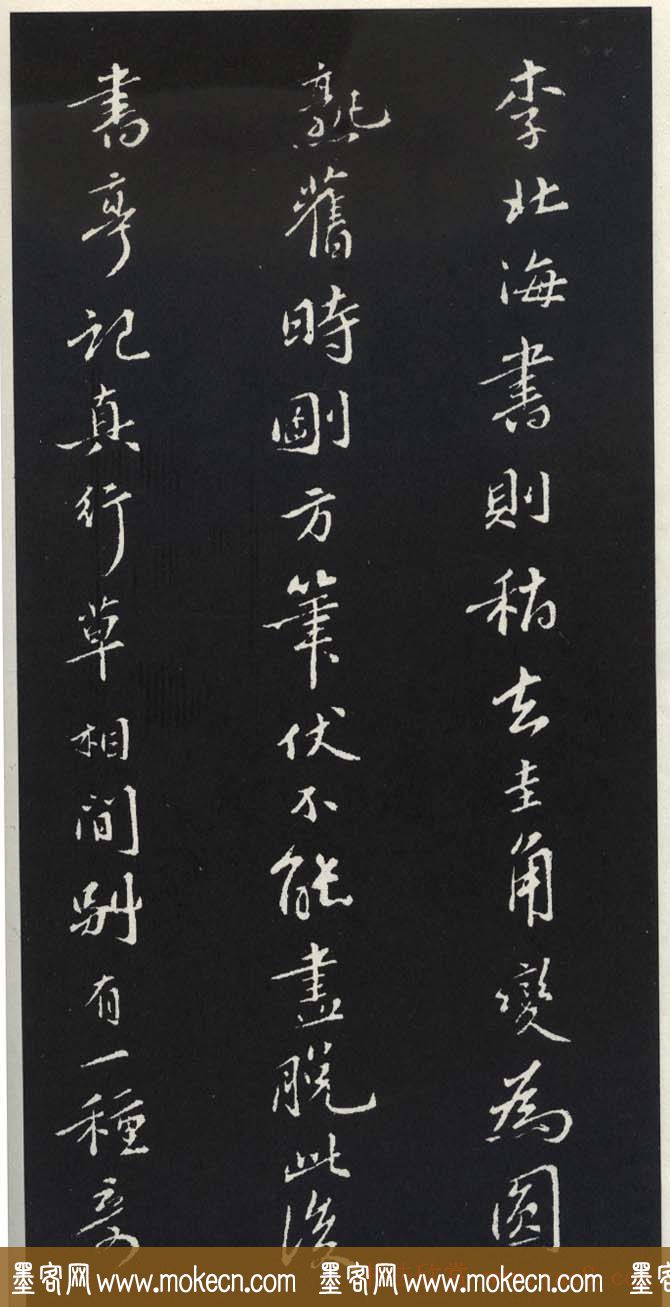 李北海書則稍去圭角變為圓
熟舊時剛方筆仗不能盡脫此後
書亭記真行草相間別有一種奇
墨客网 www.mokecn.com 墨客网 www.mokecn.com 墨客